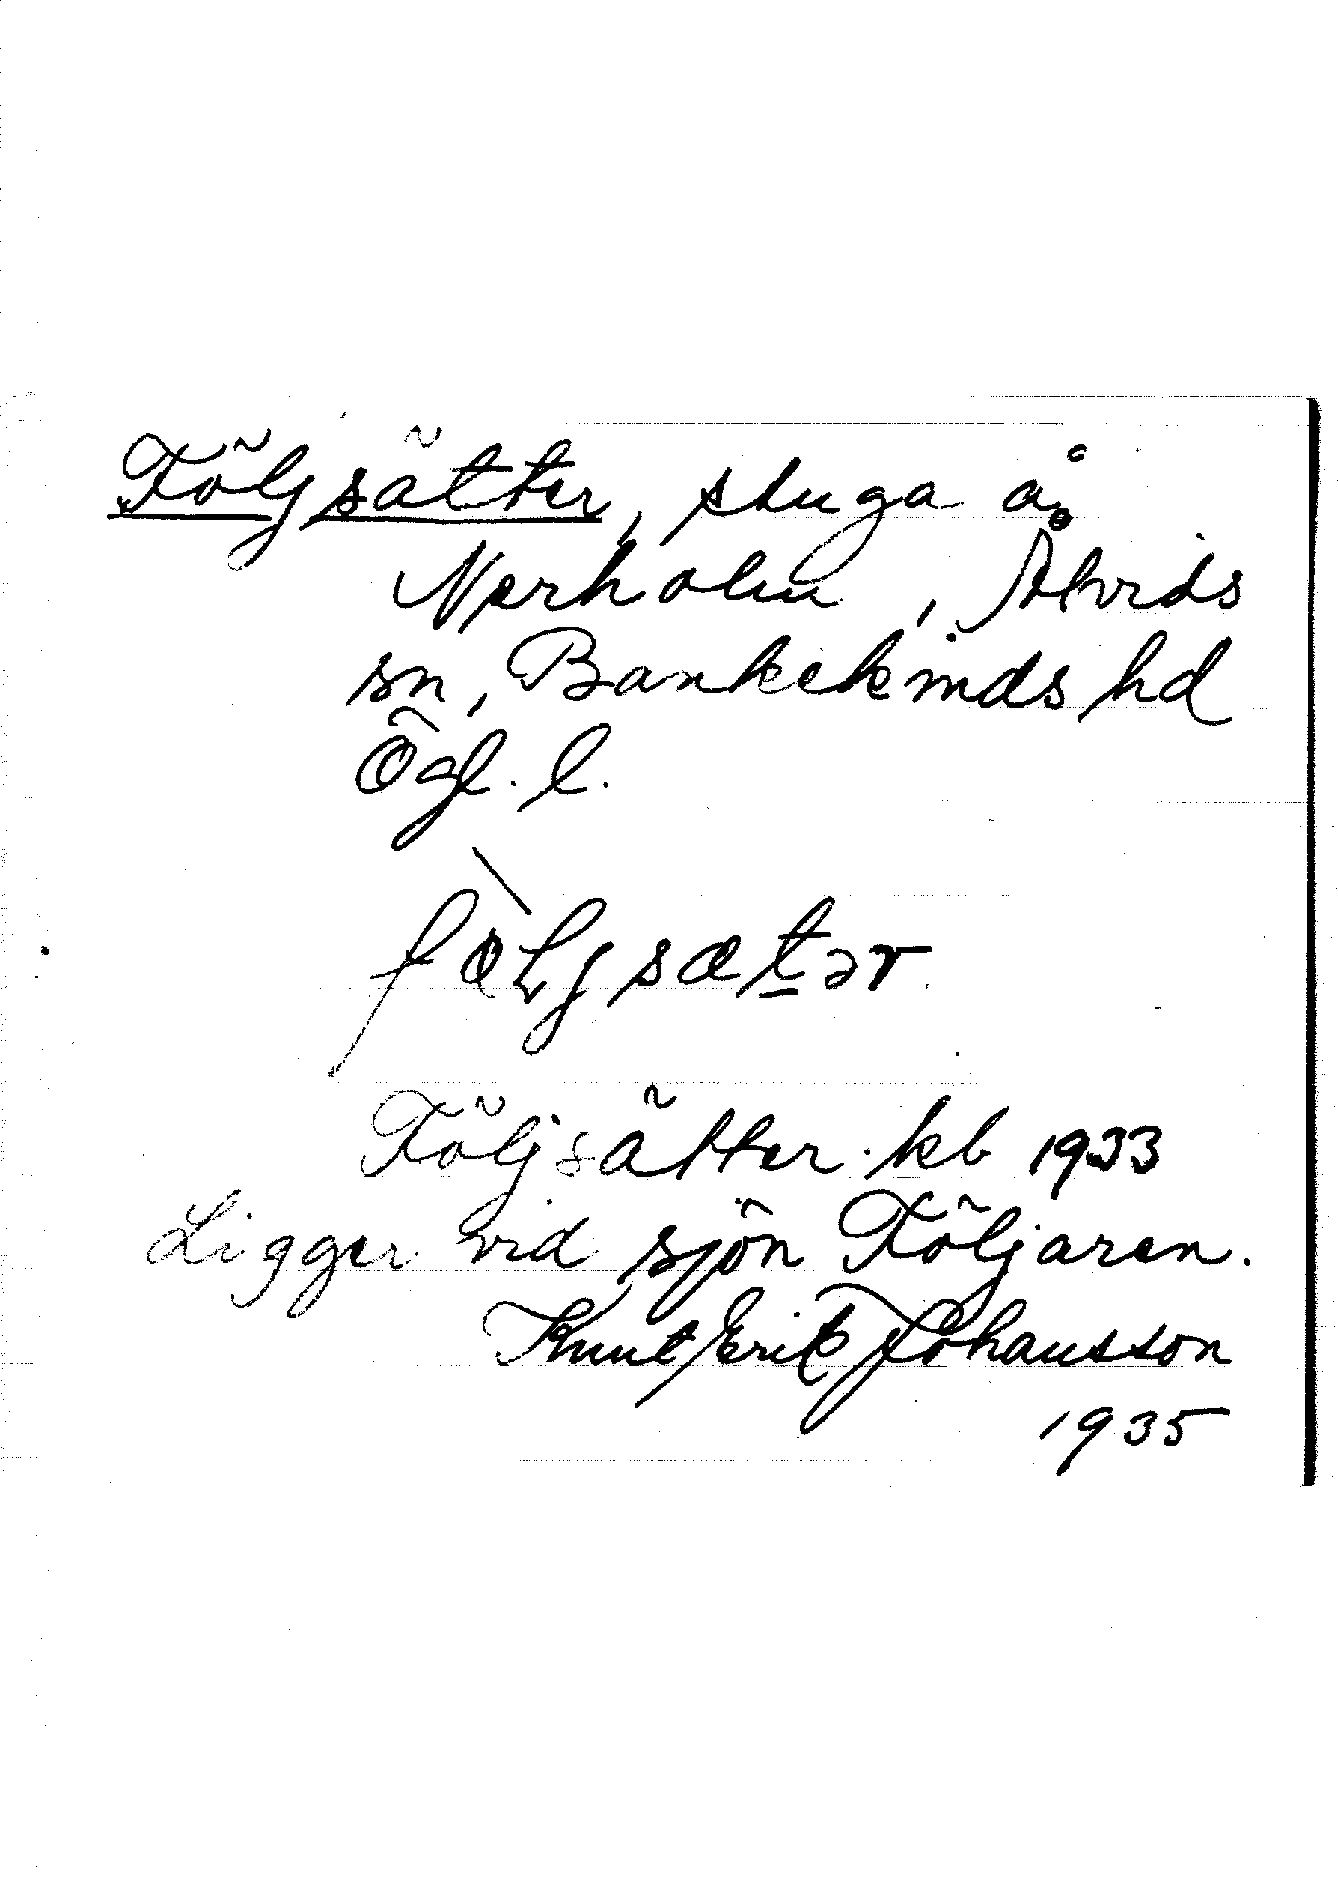 Följsätter, stuga å
Nerholm, Åtvids
sn, Bankekinds hd
Ögl. l.
Följsätter. kb 1933
Ligger vid sjön Följaren.
Knut Erik Johansson
1935